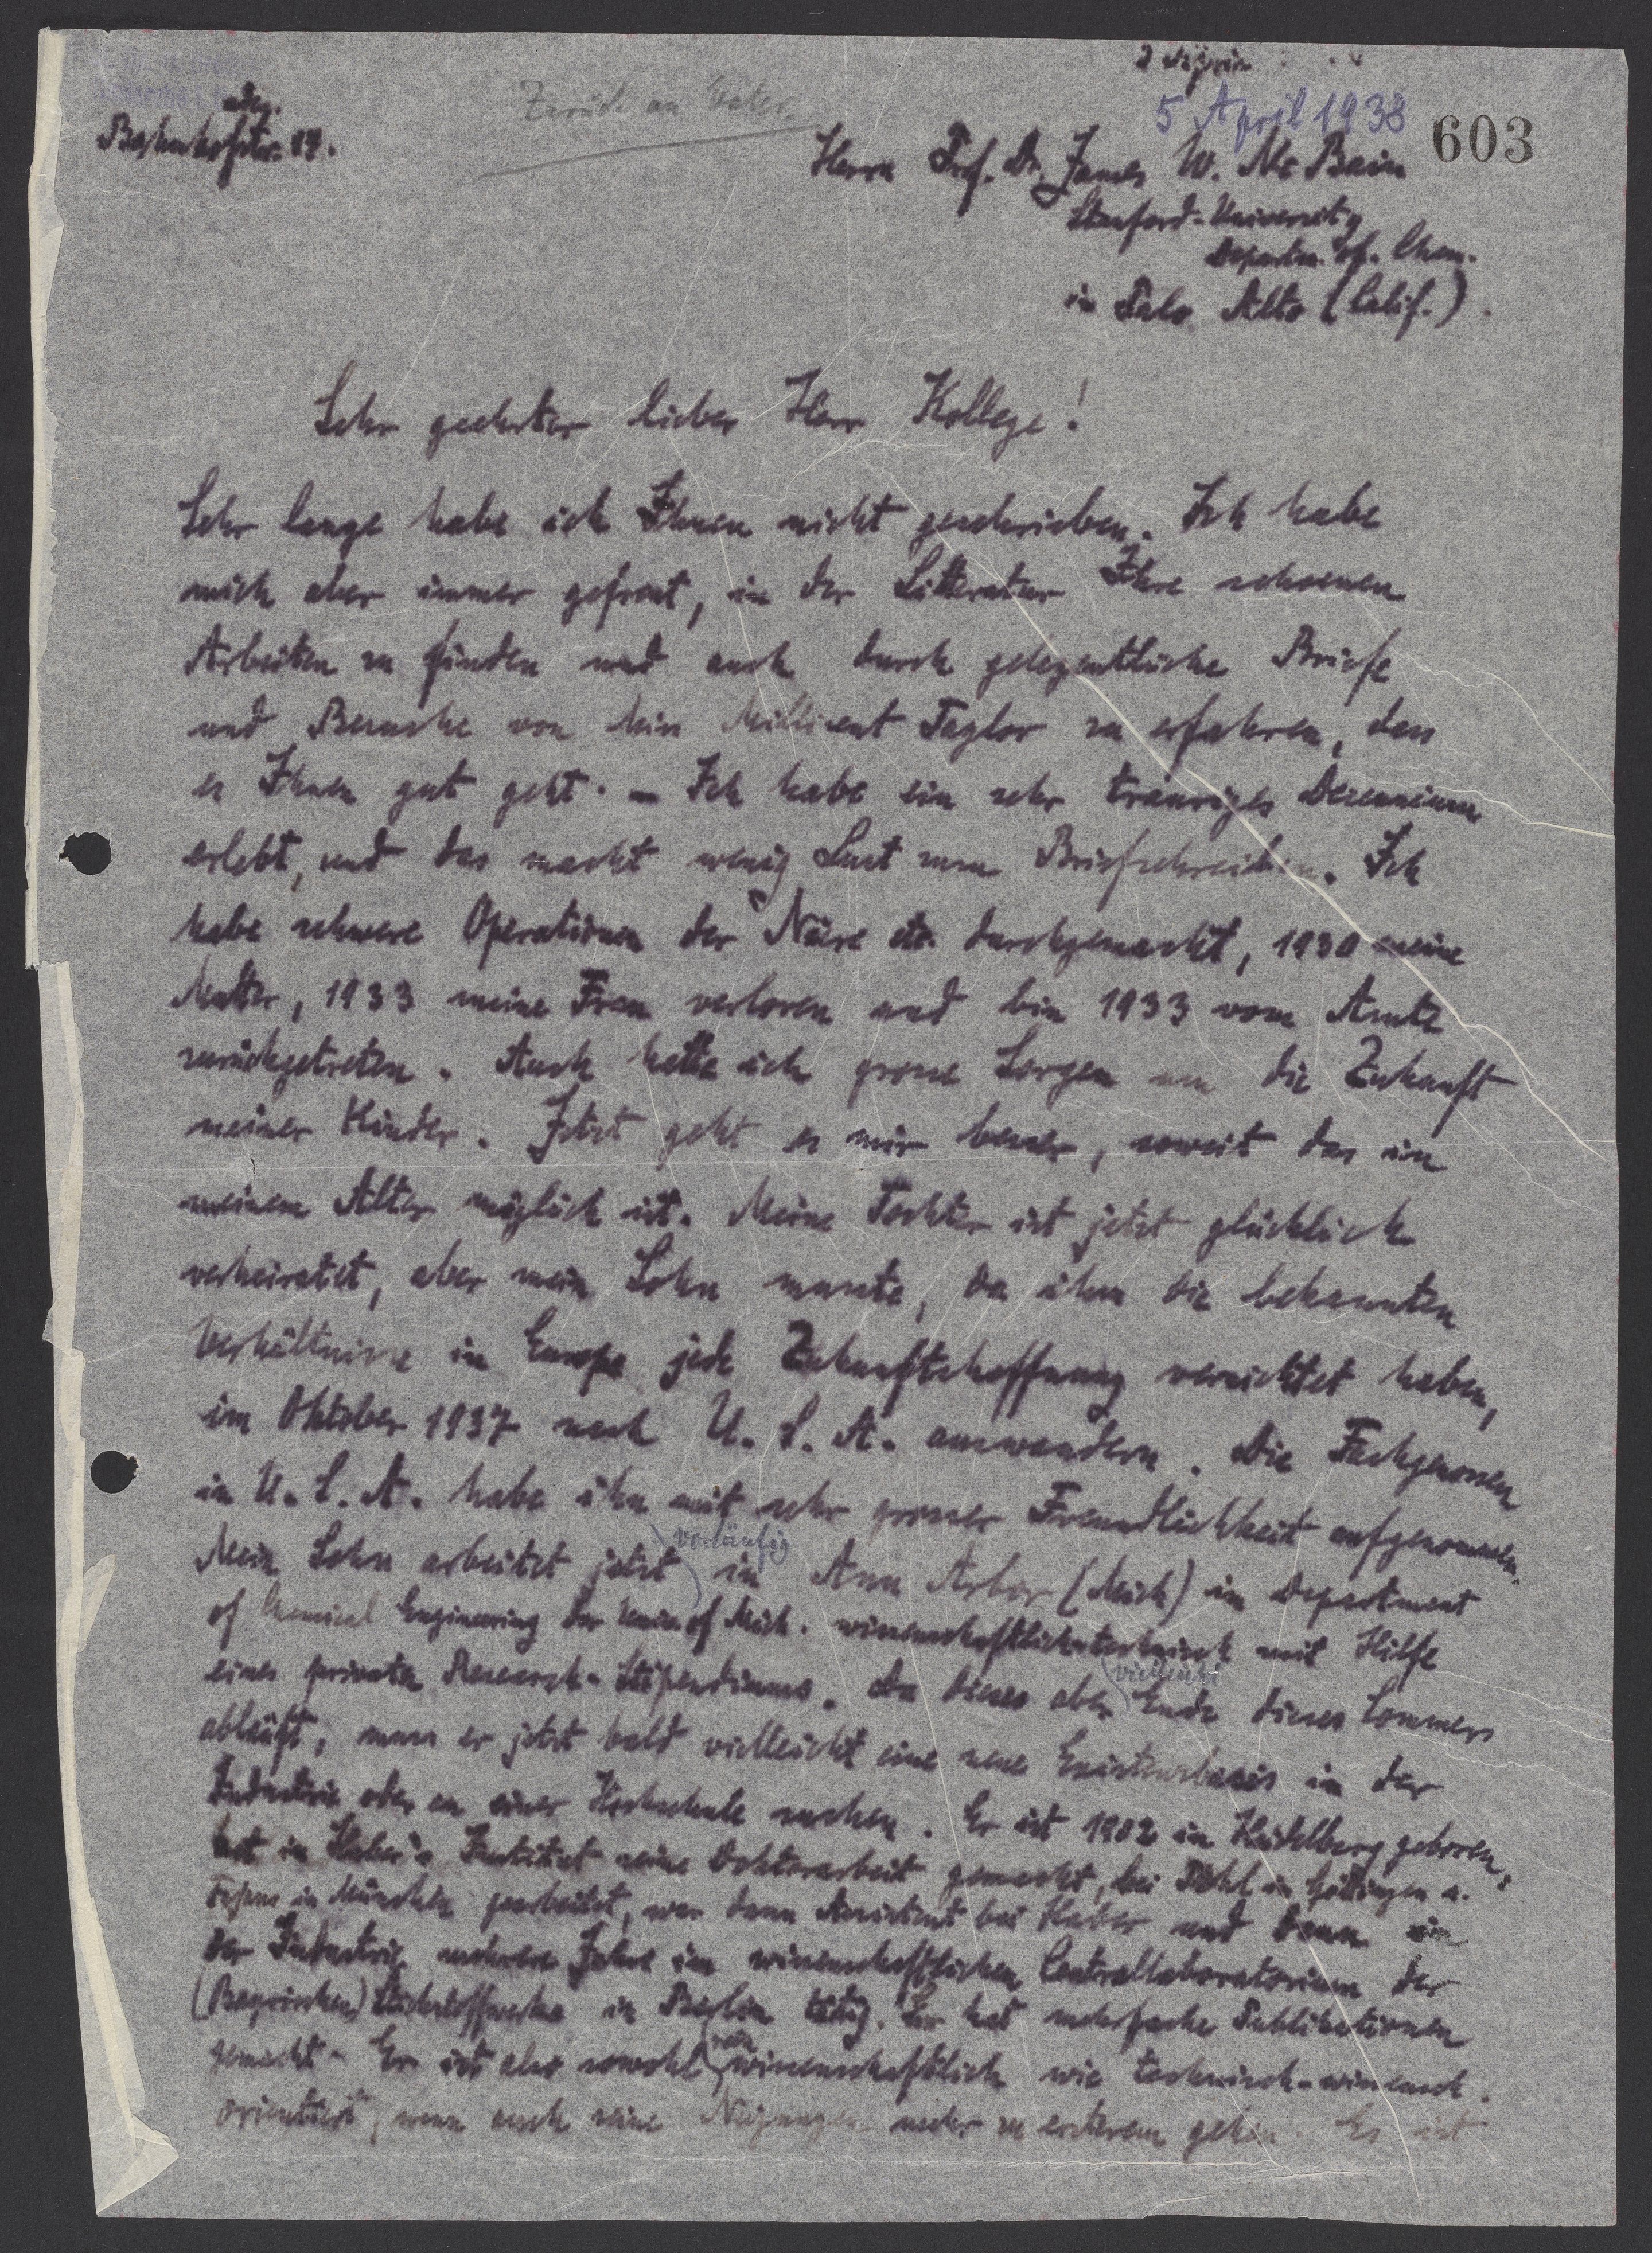 Zurück an Vater.
5 April 1938
603
Bahnhofstr. 17.
Herrn Prof. Dr. James W. Mc Bain
Stanford-University
Departm. of. Chem.
in Palo Alto (Calif.).
Sehr geehrter lieber Herr Kollege!
Sehr lange habe ich Ihnen nicht geschrieben. Ich habe
mich aber immer gefreut, in der Litteratur Ihre schoenen
Arbeiten zu finden und auch durch gelegentliche Briefe
und Besuche von Miss Millicent Taylor zu erfahren, dass
es Ihnen gut geht. - Ich habe ein sehr trauriges Decennium
erlebt, und das macht wenig Lust zum Briefschreiben. Ich
habe schwere Operationen der Niere etc. durchgemacht, 1930 meine
Mutter, 1933 meine Frau verloren und bin 1933 vom Amte
zurückgetreten. Auch hatte ich grosse Sorgen um die Zukunft
meiner Kinder. Jetzt geht es mir besser, soweit das in
meinem Alter möglich ist. Meine Tochter ist jetzt glücklich
verheiratet, aber mein Sohn musste, da ihm die bekannten
Verhältnisse in Europa jede Zukunftshoffnung vernichtet haben,
im Oktober 1937 nach U. S. A. auswandern. Die Fachgenossen
in U. S. A. habe ihn mit sehr grosser Freundlichkeit aufgenommen.
Mein Sohn arbeitet jetzt vorläufig in Ann Arbor (Mich) in Department
of Chemical Engineering der Univ. of Mich. wissenschaftlich-technisch mit Hilfe
eines privaten Research-Stipendiums. Da dieses aber vielleicht Ende dieses Sommers
abläuft, muss er jetzt bald vielleicht eine neue Existenzbasis in der
Industrie oder an einer Hochschule suchen. Er ist 1902 in Heidelberg geboren,
hat in Haber's Institut seine Doktorarbeit gemacht, bei Pohl in Göttingen u.
Fajans in München gearbeitet, war dann Assistent bei Haber und dann in
der Industrie mehrere Jahre im wissenschaftlichen Centrallaboratorium der
(Bayrischen) Stickstoffwerke in Berlin tätig. Er hat mehrfache Publikationen
gemacht. Er ist also sowohl rein wissenschaftlich wie technisch-wissensch.
orientiert, wenn auch seine Neigungen mehr zu ersterem gehen. Er ist